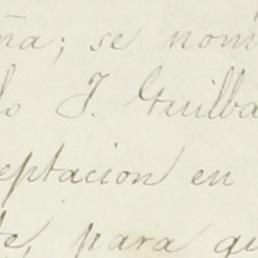 ña; se nom
lo J. Guilba
eptacion en
te, para qu